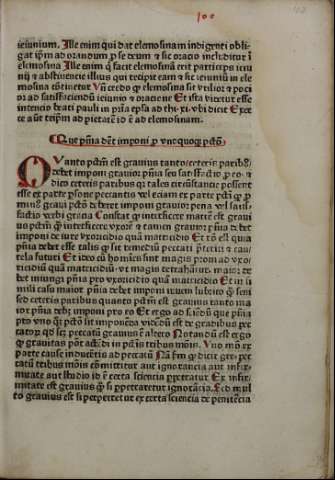 100
ieiunium. Ille enim qui dat elemosinam indigenti obli-
gat ip̄m ad orandum p̱ se ꝛcum ⁊ sic oracio includitur ī
elemosina Ille enim q̇ facit elemosinā erit particeps ieiu
nij ⁊ abstinencie illius qui recipit eam ⁊ sic ieiuniū in ele
mosina cōtinetur Vn̄ credo ꝙ elemosina sit vtilior ⁊ poci
or ad satisfaciendū ieiunio ⁊ oracione Et ista videtur esse
intencio beati pauli in p̄ma ep̄la ad thi. vi vbi dicit Exer
ce aūt teip̄m ad pietatē id ē ad elemosinam.
Que pn̄ia dēt imponi p̱ vnoquoqꝫ pctō
Quanto pctm̄ est grauius tanto ceteris paribꝰ
debet imponi grauior pn̄ia seu satisfactio p̱ eo. ⁊
dico ceteris paribus qꝛ tales circūstancie possent
esse ex parte psone peccantis vel eciam ex parte pctī ꝙ p̱
minꝰ graui pctō deberet imponi grauior pena vel satis-
factio verbi gracia Constat ꝙ interficere matrē est graui
us pctm̄ ꝙ interficere vxorē ⁊ tamen grauior pn̄ia debet
imponi de iure vxoricidio quā matricidio Et rō est quia
pn̄ia debet esse talis ꝙ sit remediū peccati p̄teriti ⁊ cau-
tela futuri Et ideo cū homines sint magis proni ad vxo/
ricidiū quā matricidiū vt magis retrahātur. maior de
bet iniungi pn̄ia pro vxoricidio quā matricidio Et in si
mili casu maior pn̄ia debet imponi iuueni lubrico ꝙ seni
sed ceteris paribus quanto pctm̄ est grauius tanto ma
ior pn̄ia debꝫ imponi pro eo Et ergo ad sciēdū que pn̄ia
pro vno qꝫ pctō sit imponēda vidēdū est de gradibus pec
catorꝫ qd̄ sꝫ peccatū grauius ē altero Notandū est ergo
ꝙ grauitas pōt attēdi in pctīs tribus modis. Vno mō ex
parte cause inducentis ad peccatū Nā fm̄ ꝙ dicit gre. pec
catū tribus modis cōmittitur aut ignorancia aut infir-
mitate aut studio id ē certa sciencia perpetratur Ex infir/
mitate est grauius ꝙ si p̱petraretur ignorācia. Sed mul
to grauius est si perpetretur ex certa sciencia de penitēcia